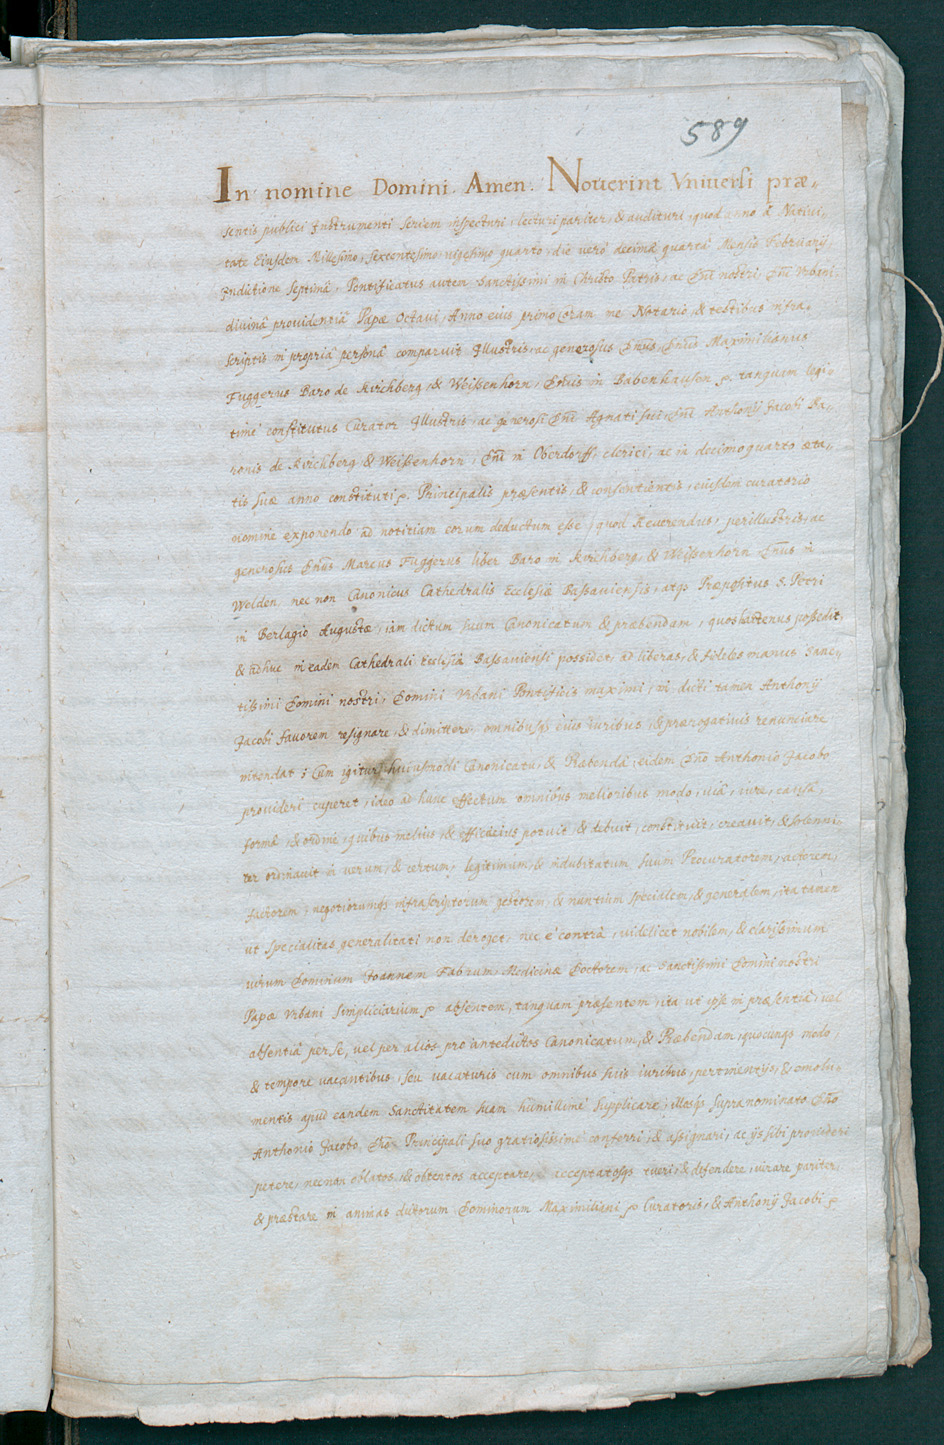 589
In nomine Domini. Amen. Nouerint Vniuersi præ-
sentis publici Instrumenti seriem inspecturi, lecturi pariter, & audituri, quod anno à Natiui-
tate Eiusdem Millesimo, sexcentesimo, uigesimo quarto, die verò decimâ quartâ Mensis Februarij,
Indictione septimâ, Pontificatus autem Sanctissimi in Christo Patris, ac Dnī nostri, Dnī Vrbani
diuinâ prouidentiâ Papæ Octaui, Anno eius primo coram me Notario, & testibus infra-
scriptis in propriâ personâ comparuit Illustris, ac generosus Dnūs, Dnūs Maximilianus
Fuggerus Baro de Kirchberg, & Weissenhorn, Dnūs in Babenhausen p. tanquam legi-
timè constitutus Curator Illustris, ac generosi Dnī Agnati sui, Dnī Anthonij Jacobi Ba-
ronis de Kirchberg & Weissenhorn, Dnī in Oberdorff, clerici, ac in decimoquarto æta-
tis suæ anno constituti p. Principalis præsentis, & consentientis, eiusdem curatorio
nomine exponendo ad notitiam eorum deductum esse, quod Reuerendus, perillustris, ac
generosus Dnūs Marcus Fuggerus liber Baro in Kirchberg, & Weissenhorn Dnūs in
Welden, nec non Canonicus Cathedralis Ecclesiæ Passauiensis, atqs Præpositus S. Petri
in Perlagio Augustæ, iam dictum suum Canonicatum & præbendam, quos hactenus possedit,
& adhuc in eadem Cathedrali Ecclesiâ Passauiensi possidet, ad liberas, & fideles manus Sanc-
tissimi Domini nostri, Domini Vrbani Pontificis maximi, in dicti tamen Anthonij
Jacobi fauorem resignare, & dimittere, omnibusqs eius iuribus, & prærogatiuis renunciare
intendat; Cum igitur huiusmodi Canonicatu, & Præbendâ eidem Dnō Anthonio Jacobo
prouideri cuperet, ideo ad hunc effectum omnibus melioribus modo, uiâ, iure, causâ,
formâ, & ordine, quibus melius, & efficacius potuit, & debuit, constituit, creauit, & solenni-
ter ordinauit in uerum, & certum, legitimum, & indubitatum suum Procuratorem, actorem,
factorem, negotiorumqs infrascriptorum gestorem, & nuntium specialem, & generalem, ita tamen
ut specialitas generalitati non deroget, nec è contrà, uidelicet nobilem, & clarissimum
uirum Dominum Joannem Fabrum, Medicinæ Doctorem, ac Sanctissimi Domini nostri
Papæ Vrbani Simpliciarium p absentem, tanquam præsentem, ita ut ipse in præsentiâ, uel
absentiâ per se, vel per alios pro antedictos Canonicatum, & Præbendam, quocunqs modo
& tempore uacantibus, seu uacaturis cum omnibus suis iuribus, pertinentijs, & emolu-
mentis apud eandem Sanctitatem suam humillimè supplicare, illosqs supranominato Dnō
Anthonio Jacobo, Dnō Principali suo gratiosissimè conferri, & assignari, ac ijs sibi prouideri
petere, necnon oblatos, & obtentos acceptare, acceptatosqs tueri, & defendere, iurare pariter,
& præstare in animas dictorum Dominorum Maximiliani p Curatoris, & Anthonij Jacobi p